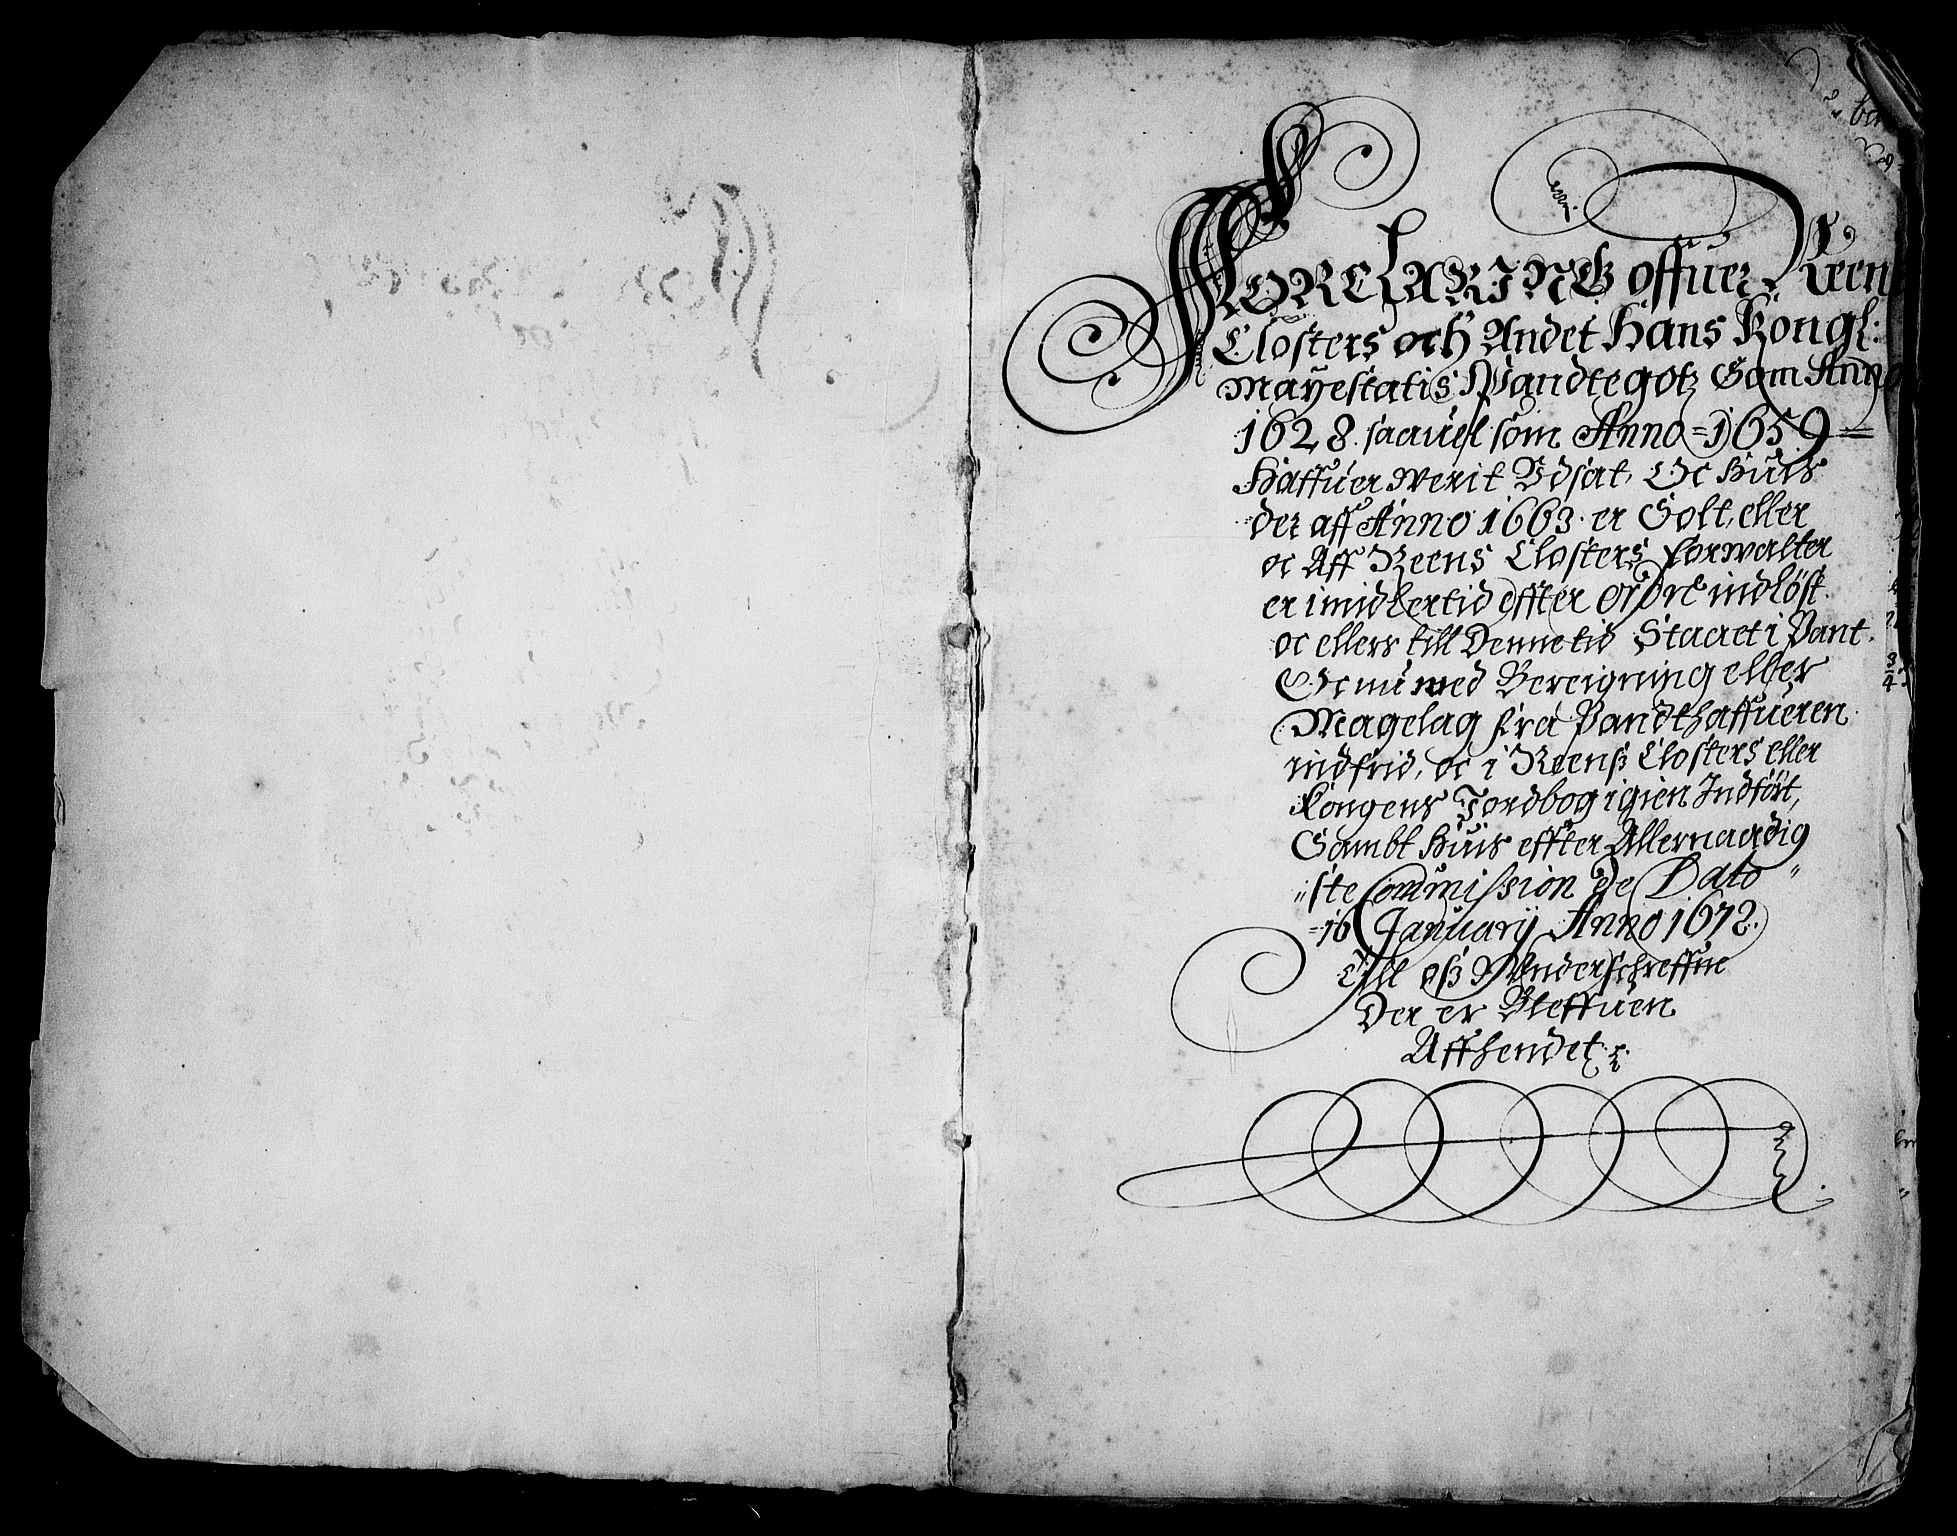 FORCLARING offuer Reens
Closters och Andet Hans Kongl:
Mayestatis Pandtegotz Som Anno
1628. saauel som Anno 1659
Haffuer werit Udsat, Oc Huis
der aff Anno 1663. er Solt, eller
oc Aff Reens Closters forwalter
er imidlertid effter ordre indløst.
oc ellers till Denne tid Staaet i Pant.
Oc nu med Bereigning eller
Magelag fra Pandthaffueren
indfrid, oc i Reenss Closters eller
Kongens Jordbog igien Indført,
Sambt Huis effter Allernaadig
"ste Commission de Dato "
=16 January Anno 1672.
Till oss Underschreffne
Der er Bleffuen
Affhendet